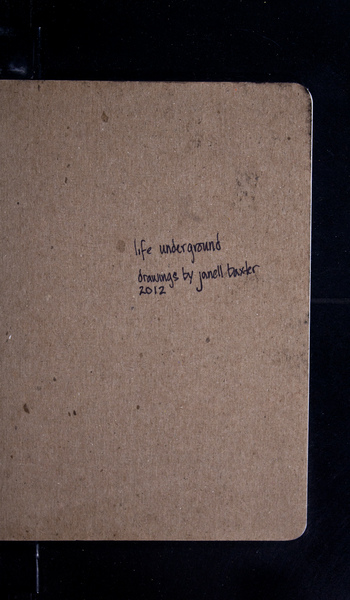 life underground
drawings by janell baxter
2012